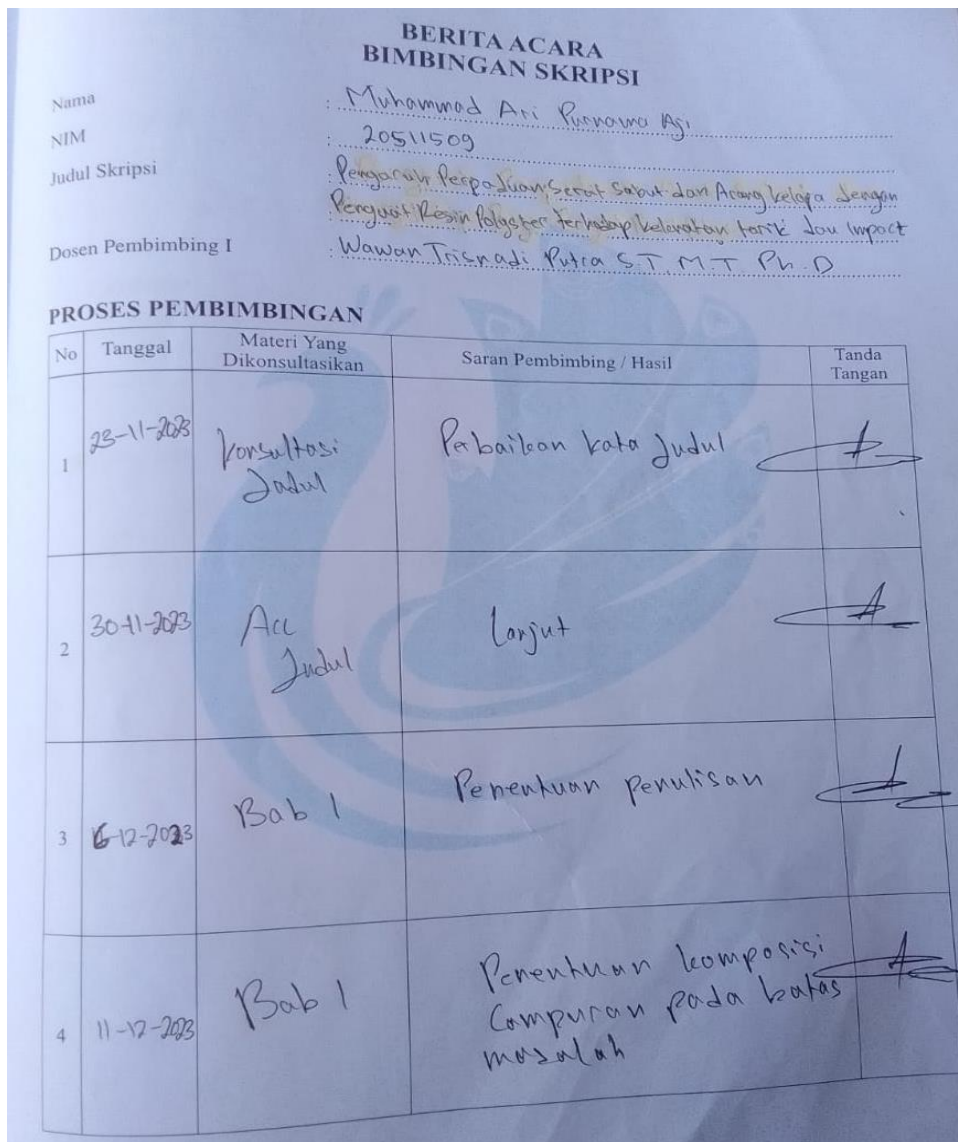 BERITA ACARA
BIMBINGAN SKRIPSI
Nama : Muhammad Ari Purnama Aji
NIM : 20511509
Judul Skripsi : Pengaruh Perpaduan Serat Sabut dan Arang kelapa dengan
Penguat Resin Polyster terhadap kekuatan tarik dan Impact
Dosen Pembimbing I : Wawan Trisnadi Putra S.T, M.T, Ph.D
PROSES PEMBIMBINGAN
No Tanggal Materi Yang Dikonsultasikan Saran Pembimbing / Hasil Tanda Tangan
1 23-11-2023 Konsultasi Judul Perbaikan kata Judul
2 30-11-2023 Acc Judul Lanjut
3 6-12-2023 Bab 1 Penentuan penulisan
4 11-12-2023 Bab 1 Penentuan komposisi
Campuran pada batas
masalah